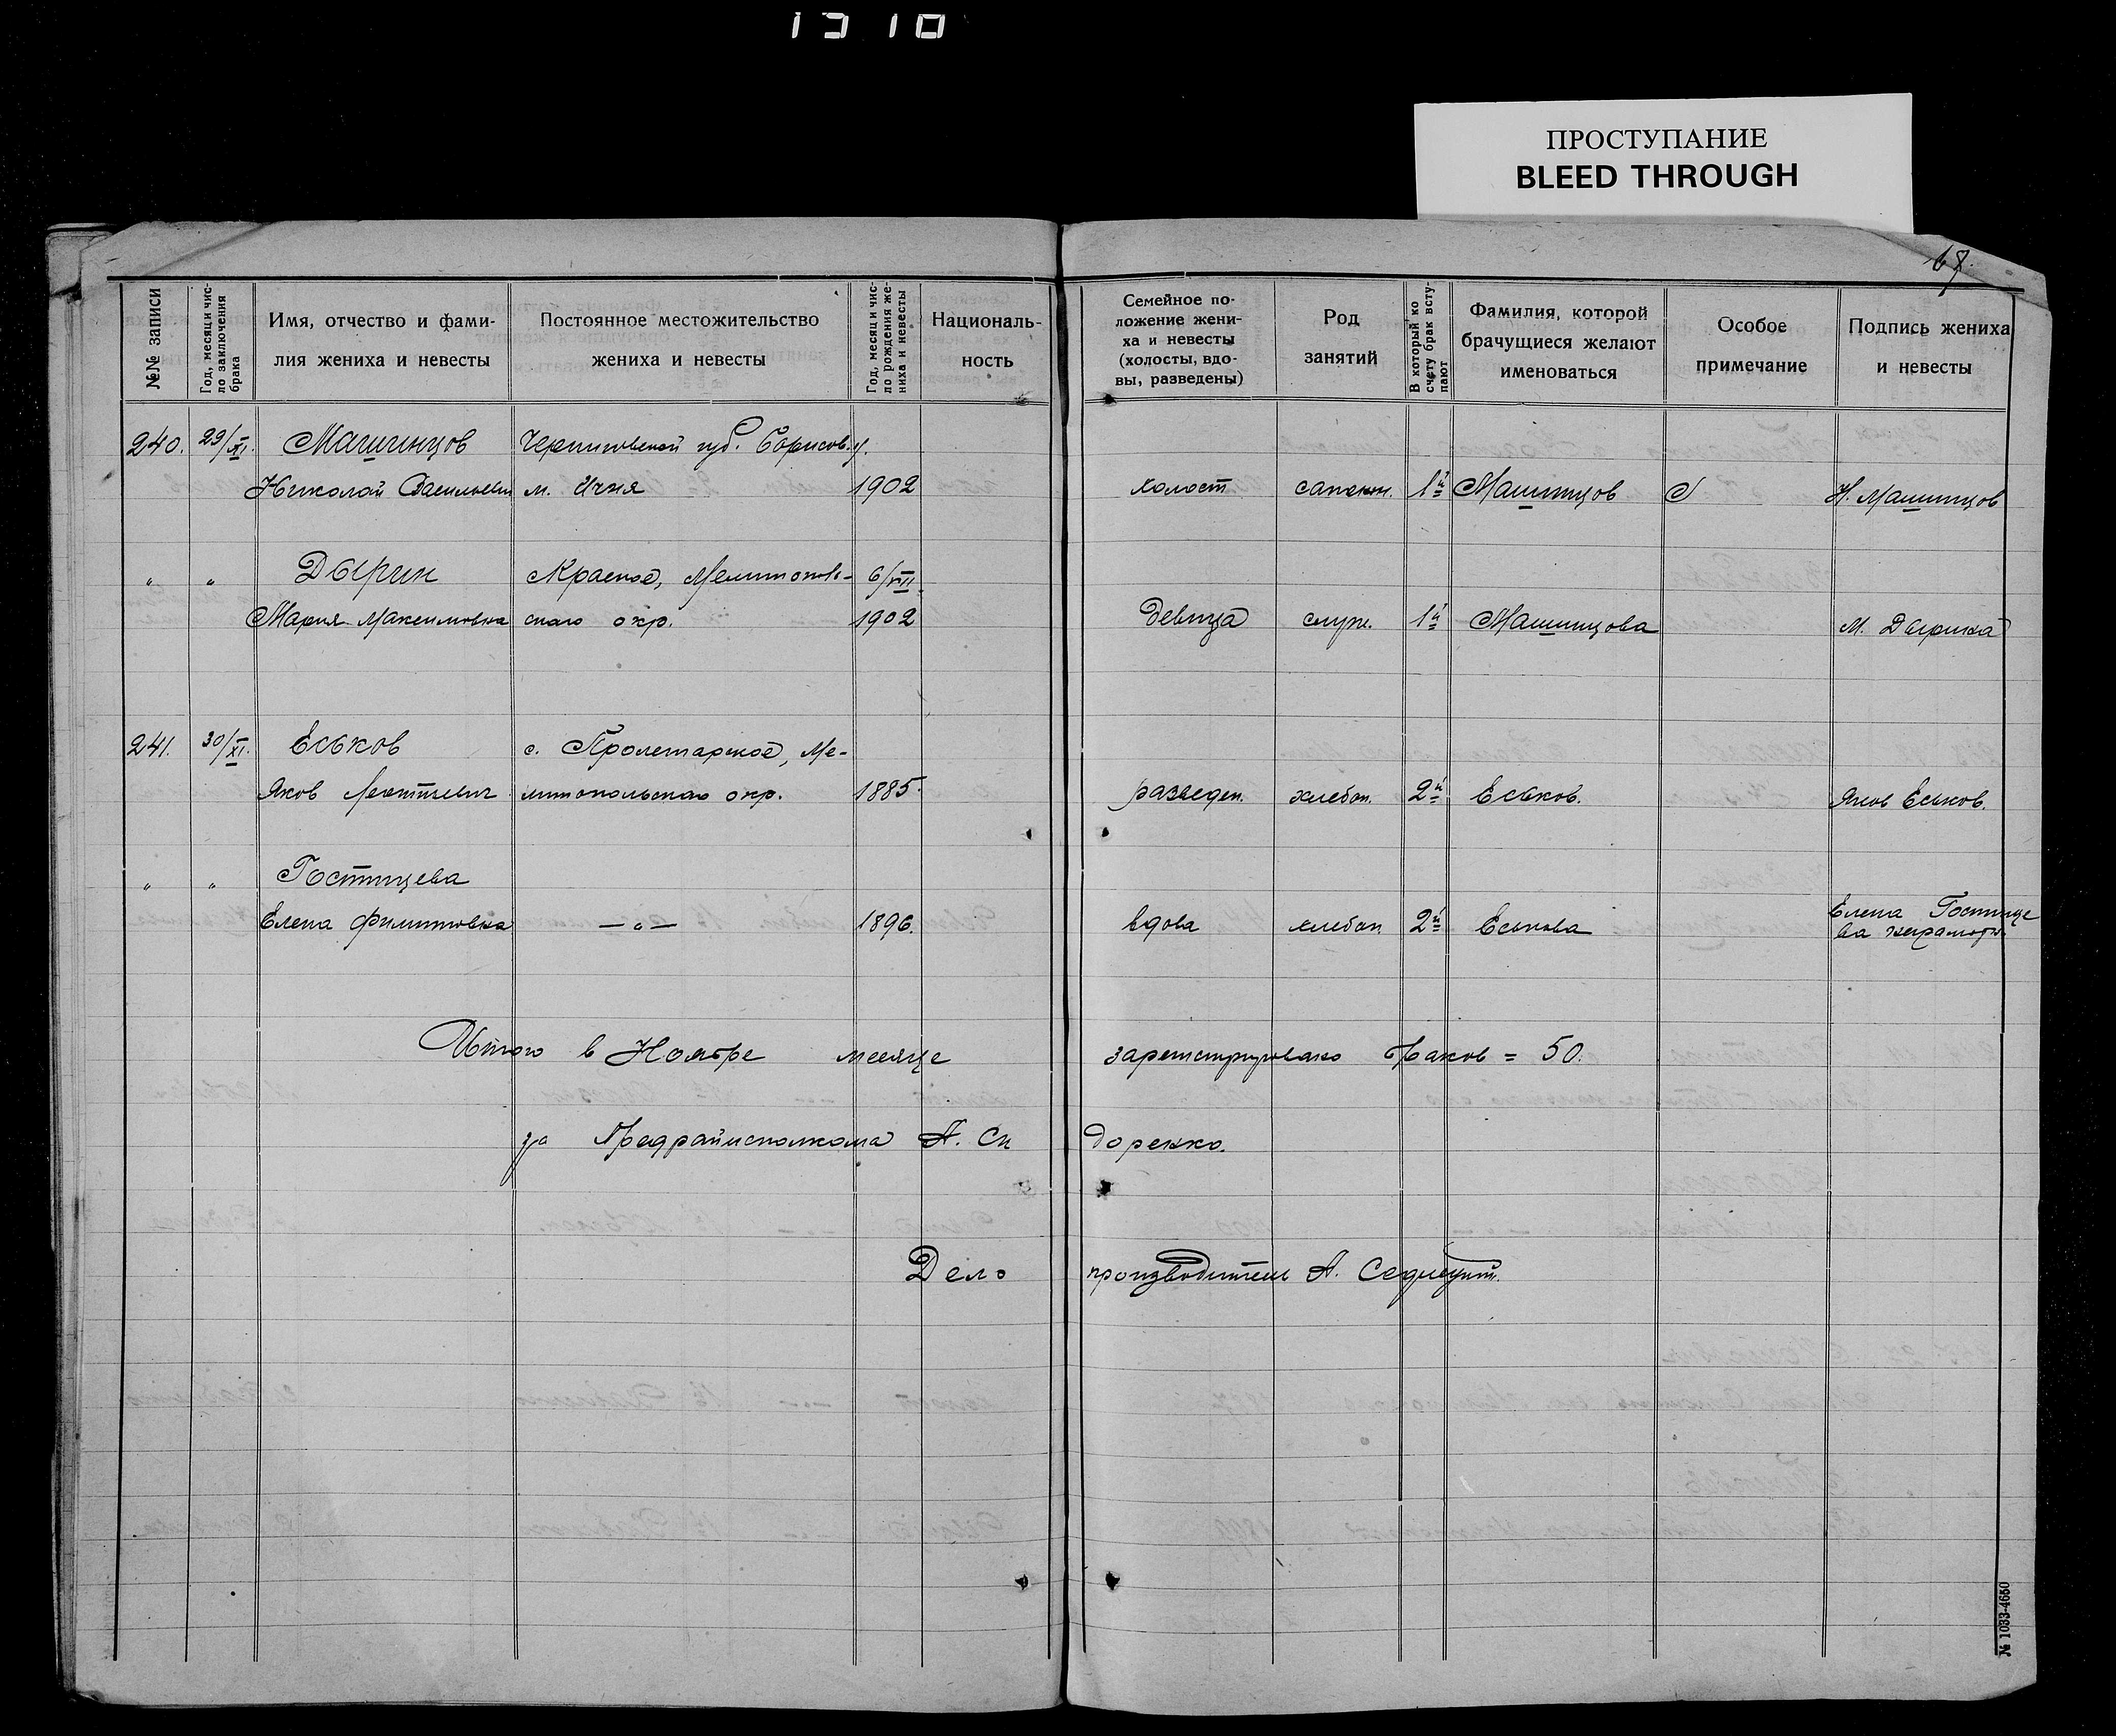 1310
ПРОСТУПАНИЕ
BLEED THROUGH
№№ записи
Год, месяц и чис-
ло заключения
брака
Имя, отчество и фами-
лия жениха и невесты
Постоянное местожительство
жениха и невесты
Год, месяц и чис-
ло рождения же-
ниха и невесты
Националь-
ность
Семейное по-
ложение жени-
ха и невесты
(холосты, вдо-
вы, разведены)
Род
занятий
В который ко
счету брак всту-
пают
Фамилия, которой
брачущиеся желают
именоваться
Особое
примечание
Подпись жениха
и невесты
240. 29/XI. Машинцов Черниговской губ. Борисов. у.
Николай Васильевич м. Ичня 1902 холост сапожн. 1й Машинцов Н. Машинцов
" " Дырин Красное, Мелитополь- 6/VII
Мария Максимовна ского окр. 1902 девица служ. 1й Машинцова М. Дырина
241. 30/XI. Еськов с. Пролетарское, Ме-
Яков литопольского окр. 1885. разведен. хлебоп. 2й Еськов. Яков Еськов.
" " Гостищева
Елена Филипповна — " — 1896. вдова хлебоп. 2й Еськова Елена Гостище
ва неграмотн.
Итого в Ноябре месяце зарегистрировано браков = 50.
за Предрайисполкома А. Си доренко.
Дело производитель А. Седлецкий.
№ 1033-4650